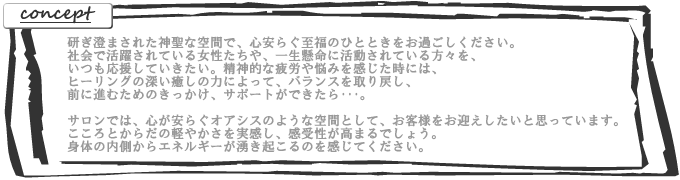 concept
研ぎ澄まされた神聖な空間で、心安らぐ至福のひとときをお過ごしください。
社会で活躍されている女性たちや、一生懸命に活動されている方々を、
いつも応援していきたい。精神的な疲労や悩みを感じた時には、
ヒーリングの深い癒しの力によって、バランスを取り戻し、
前に進むためのきっかけ、サポートができたら･･･。
サロンでは、心が安らぐオアシスのような空間として、お客様をお迎えしたいと思っています。
こころとからだの軽やかさを実感し、感受性が高まるでしょう。
身体の内側からエネルギーが湧き起こるのを感じてください。